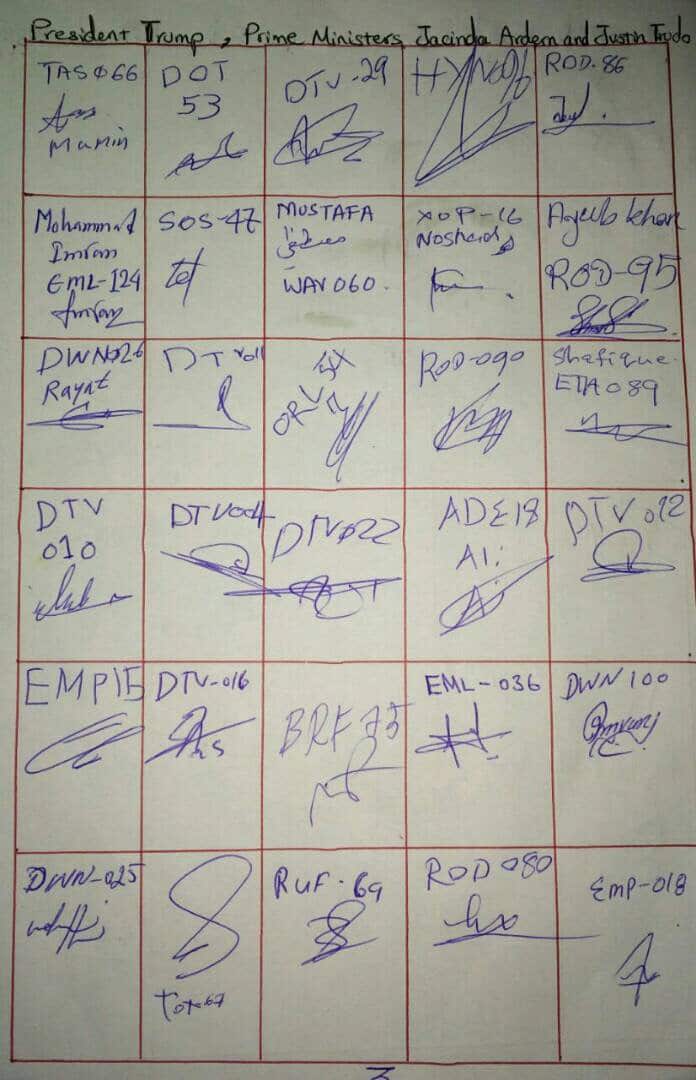 President Trump, Prime Ministers, Jacinda Ardern and Justin Trudo
TASØ66
Mamin
DOT
53
DTV-29
HYN006
ROD-86
Mohammad
Imran
EML-124
Imran
SOS-47
MUSTAFA
مصطفىٰ
WAV060.
XOP-16
Noshad
Ayeub khan
ROD-95
DWNØ26
Rayat
DTV011
ORV
ROD-090
Shafique
ETA089
DTV
010
DTV004
DTVØ22
ADE18
Ali
DTV012
EMP15
DTV-016
BRF75
EML-036
DWN100
DWN-025
TOX67
RUF-69
ROD080
EMP-018
3